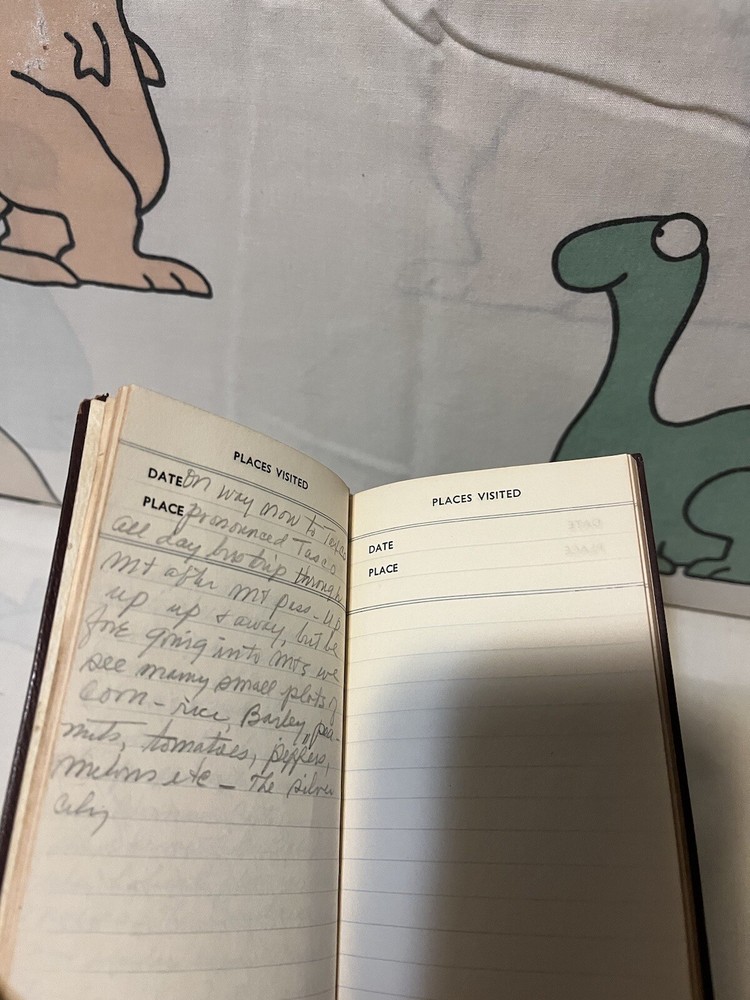 PLACES VISITED
DATE On way now to
PLACE pronounced Tasco
all day bus trip through
Mt after Mt pass - up
up up & away, but be
fore going into Mts we
see many small plots of
Corn - rice, Barley, pea-
nuts, tomatoes, peppers,
melons etc - The silver
city
PLACES VISITED
DATE
PLACE